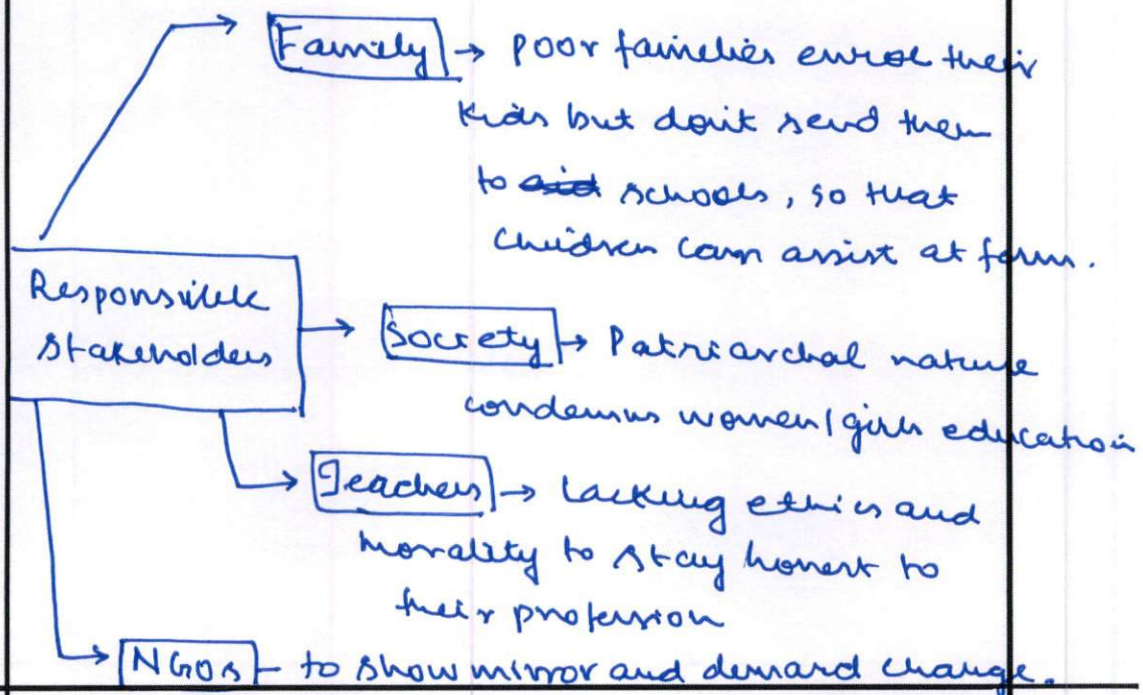 Family → poor families enrol their
kids but don't send them
to schools, so that
children can assist at farm.
Responsible
stakeholders
Society → Patriarchal nature
condemns women/girls education
Teachers → Lacking ethics and
morality to stay honest to
their profession
NGOs - to show mirror and demand change.